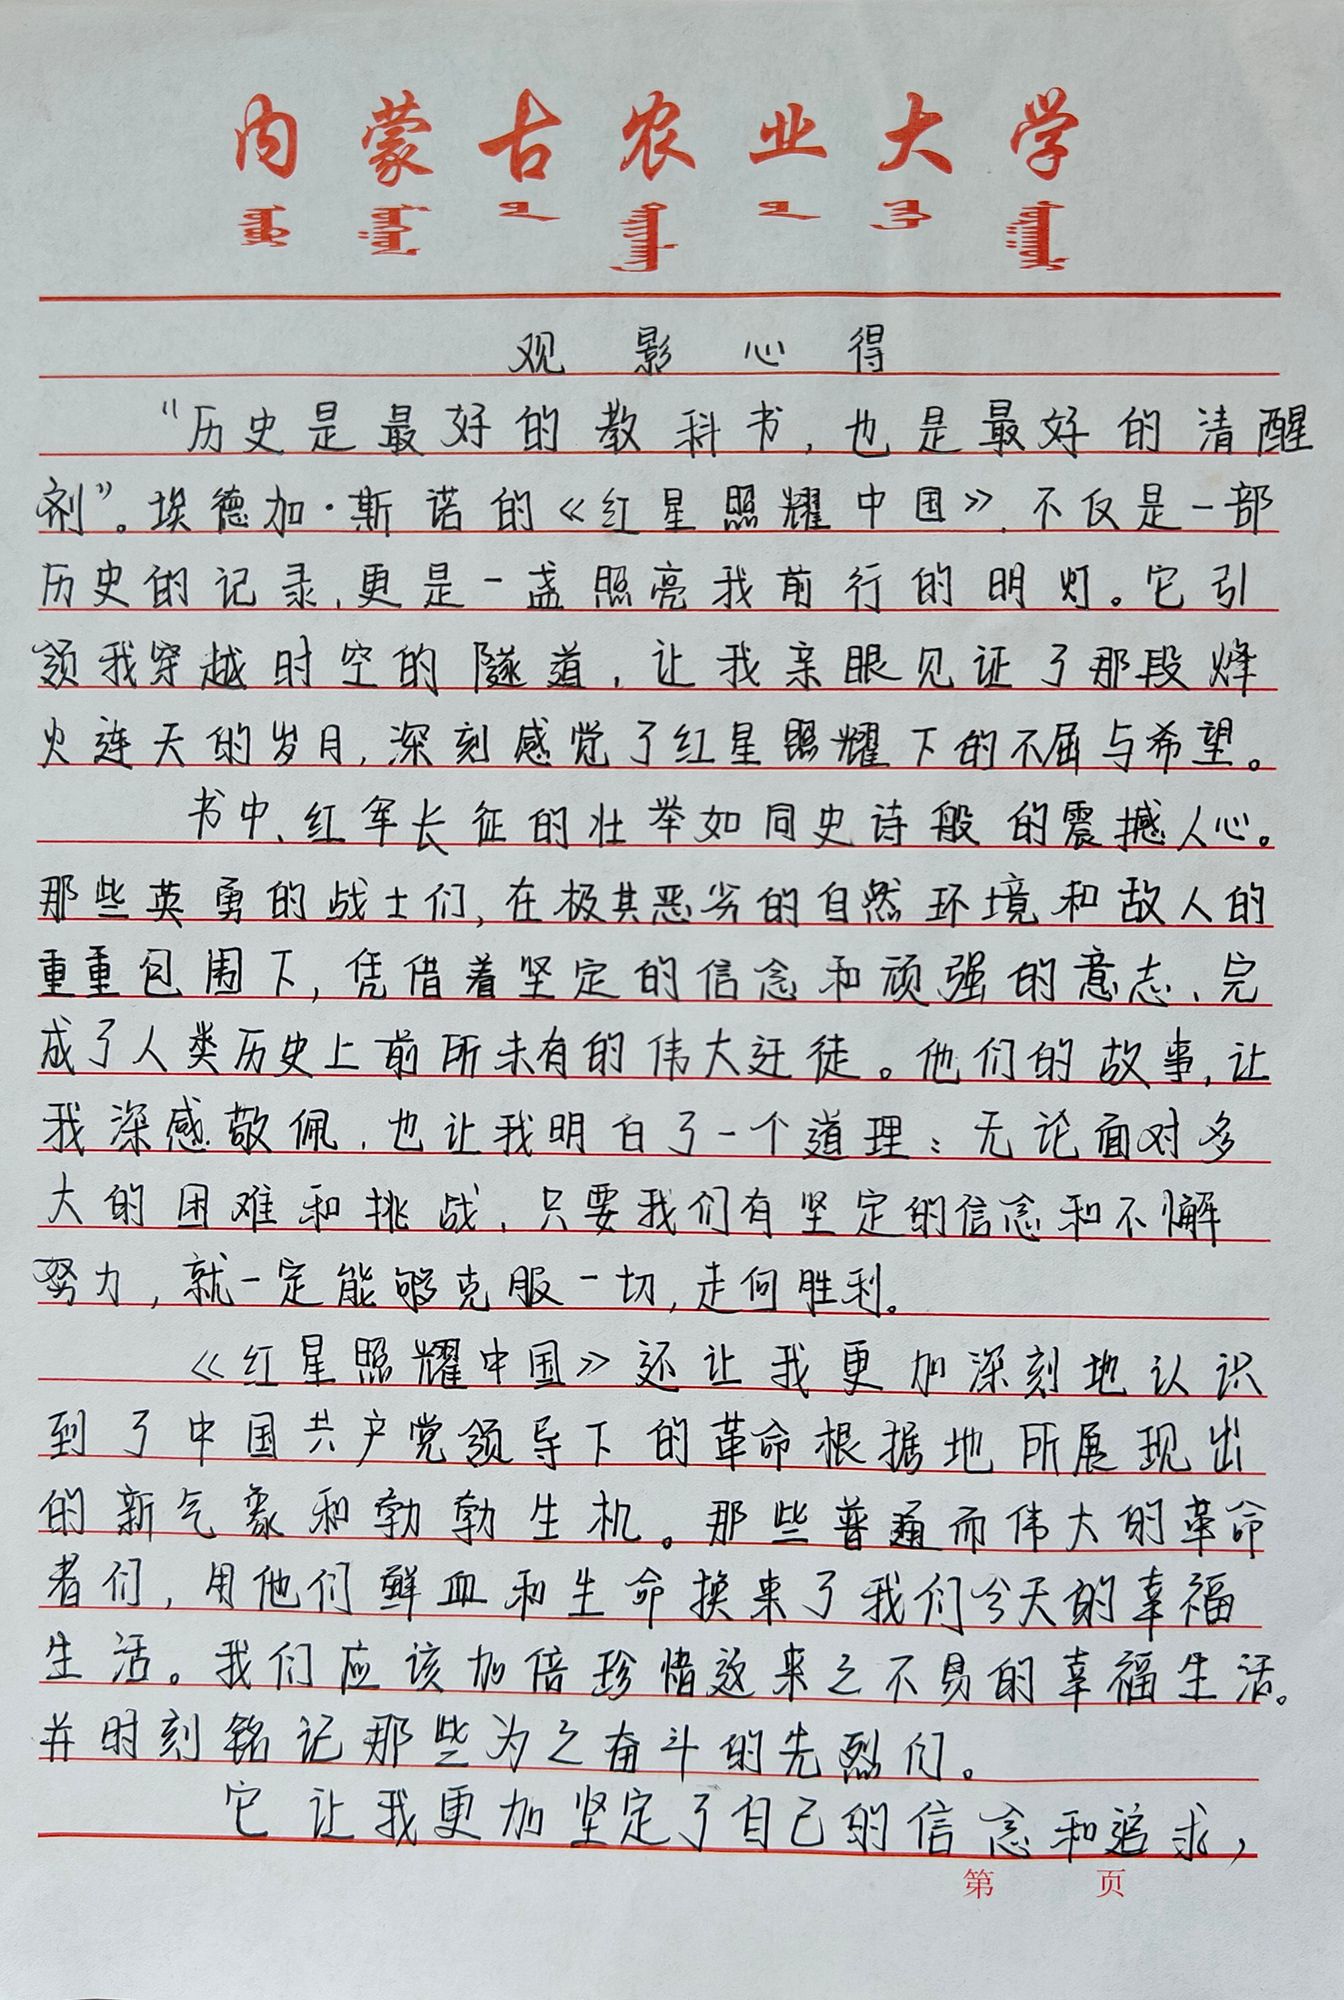 内蒙古农业大学
观影心得
“历史是最好的教科书，也是最好的清醒
剂”。埃德加·斯诺的《红星照耀中国》，不仅是一部
历史的记录，更是一盏照亮我前行的明灯。它引
领我穿越时空的隧道，让我亲眼见证了那段烽
火连天的岁月，深刻感觉了红星照耀下的不屈与希望。
书中、红军长征的壮举如同史诗般的震撼人心。
那些英勇的战士们，在极其恶劣的自然环境和敌人的
重重包围下，凭借着坚定的信念和顽强的意志、完
成了人类历史上前所未有的伟大迁徒。他们的故事，让
我深感敬佩，也让我明白了一个道理：无论面对多
大的困难和挑战，只要我们有坚定的信念和不懈
努力，就一定能够克服一切，走向胜利。
《红星照耀中国》还让我更加深刻地认识
到了中国共产党领导下的革命根据地所展现出
的新气象和勃勃生机。那些普通而伟大的革命
者们，用他们鲜血和生命换来了我们今天的幸福
生活。我们应该加倍珍惜这来之不易的幸福生活。
并时刻铭记那些为之奋斗的先烈们。
它让我更加坚定了自己的信念和追求，
第 页